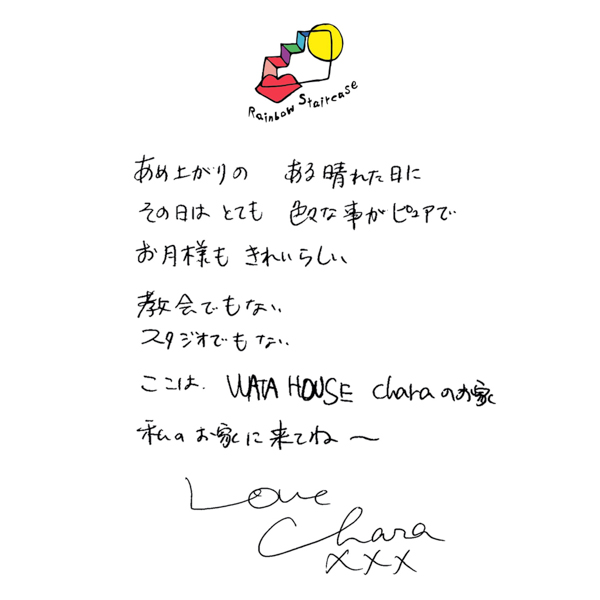 Rainbow Staircase
あめ上がりの ある晴れた日に
その日は とても 色々な事がピュアで
お月様も きれいらしい
教会でもない
スタジオでもない
ここは. WATA HOUSE Charaのお家
私の お家に来てね〜
Love
Chara
xxx